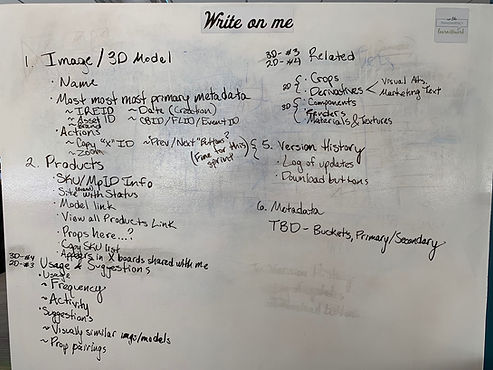 Write on me
1. Image / 3D Model
· Name
· Most most most primary metadata
~ IREID ~ Date (Creation)
~ Asset ID ~ CBID/FLID/Event ID
· Actions
~ Copy "X" ID ~ Prev/Next "Buttons"?
~ Zoom (Fine for this sprint)
2. Products
· SKU/MpID Info
Site with Status
· Model link
· View all Products Link
· Props here...?
· Copy SKU list
· Appears in X boards shared with me
3D-#4
2D-#3 Usage & Suggestions
· Usage
~ Frequency
~ Activity
· Suggestions
~ Visually similar imgs/models
~ Prop pairings
3D-#3
2D-#4 Related
2D { · Crops
· Derivatives < Visual Alts.
Marketing Text
3D { · Components
· Renders
· Materials & Textures
5. Version History
· Log of updates
· Download buttons
6. Metadata
TBD - Buckets, Primary/Secondary